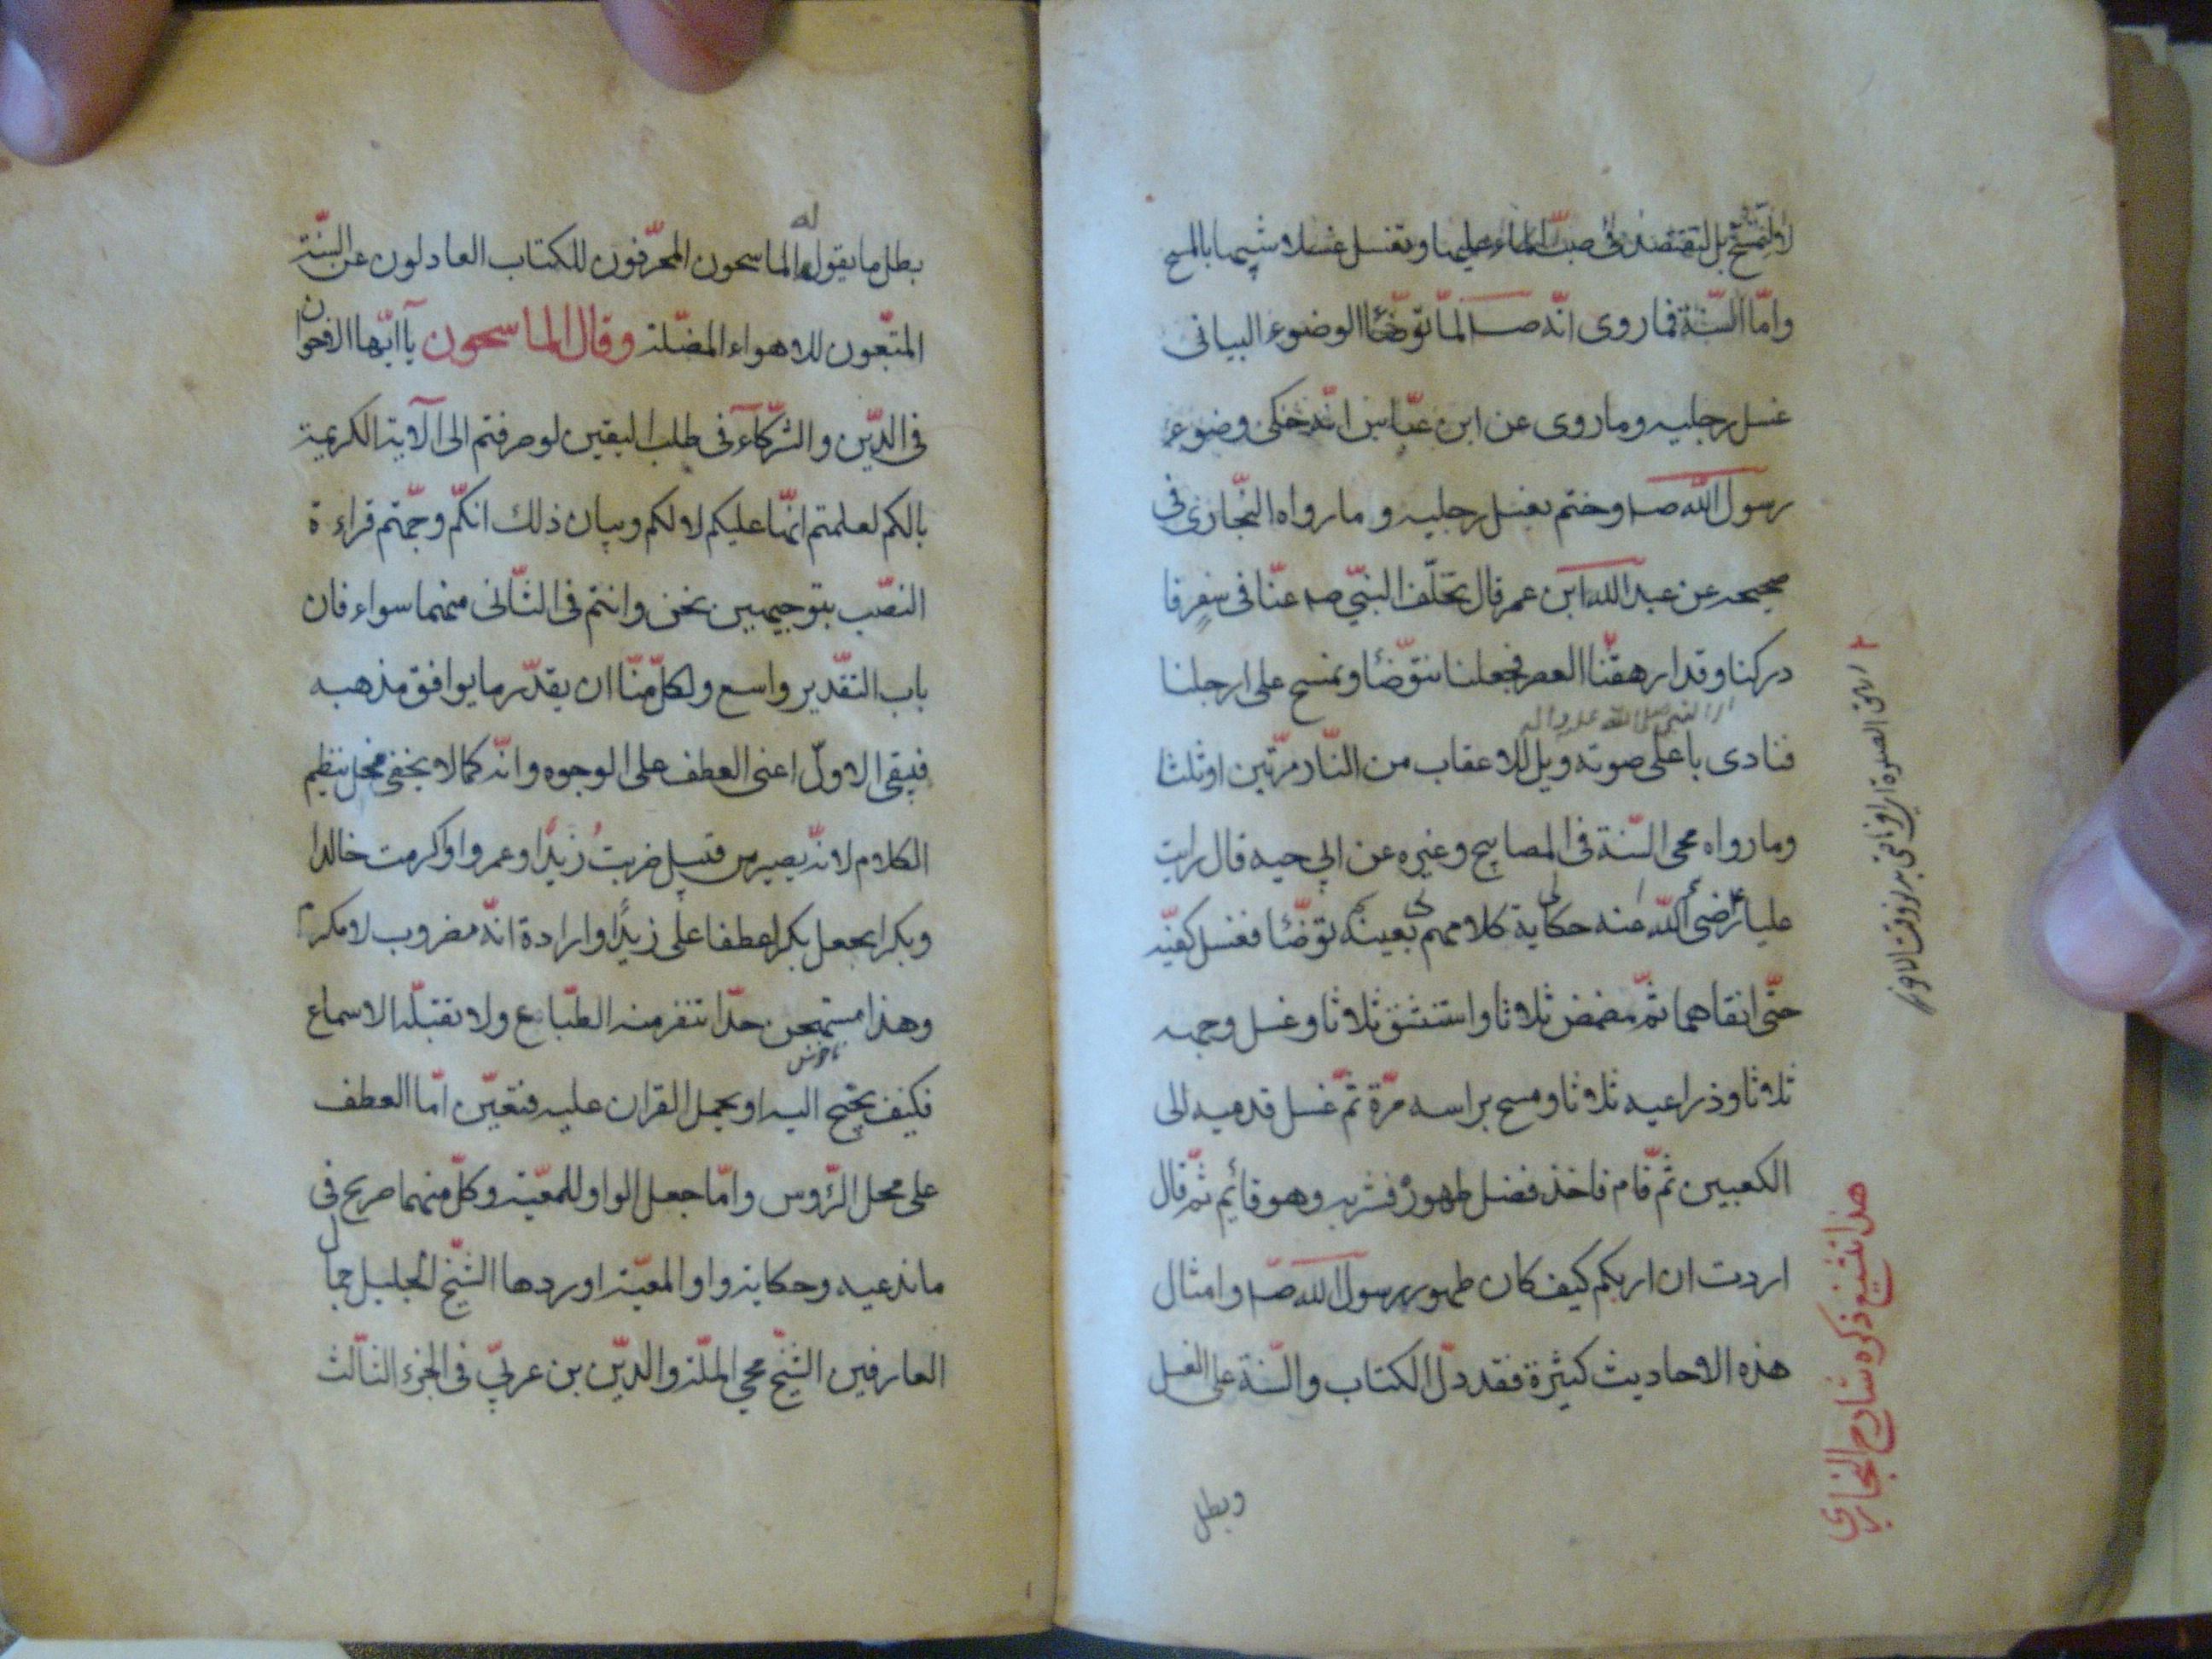 لا لتمسح بل لتقتصد فى صب الماء عليها و تغسل غسلا شبيها بالمسح
وامّا السّنة فما روى انّه صـ لمّا توّضا الوضوء البيانى
غسل رجليه وما روى عن ابن عبّاس انّه حكى وضوء
رسول اللّه صـ وختم بغسل رجليه و ما رواه البخّارى فى
صحيحه عن عبد اللّه ابن عمر قال تخلّف النبىّ صـ عنّا فى سفر فا
دركنا وقد ارهقنا العصر فجعلنا نتوّضأ ونمسح على ارجلنا
النبى صلى اللّه عليه وآله
فنادى با على صوته ويل للاعقاب من النّار مرّتين او ثلثا
وما رواه محى السّنة فى المصابيح وغيره عن ابى حيه قال رايت
عليا رضى اللّه عنه حكاية كلامهم بعينه توضّأ فغسل كفيّه
حتّى انقاهما ثمّ مضمض ثلاثا واستنشق ثلاثا وغسل وجهه
ثلاثا وذراعيه ثلاثا ومسح براسه مرّة ثمّ غسل قدميه الى
الكعبين ثمّ قام فاخذ فضل طهوره فشربه وهو قائم ثمّ قال
اردت ان اريكم كيف كان طهور رسول اللّه صـ وامثال
هذه الاحاديث كثيرة فقد دلّ الكتاب والسّنة على الغسل
وبطل
هذا تشنيع ذكره شارح البخارى
بطل ما يقوله الماسحون المحرّفون للكتاب العادلون عن السّنة
المتّبعون للاهواء المضلّة وقال الماسّحون يآ ايّها الاخوان
فى الدّين والشّركآء فى طلب اليقين لو صرفتم الى الآية الكريمة
بالكم لعلمتم انّها عليكم لا لكم وبيان ذلك انكّم وجّهتم قراءة
النصّب بتوجيهين نحن وانتم فى الثّانى منهما سواء فان
باب التقّدير واسع ولكلّ منّا ان يقدّر ما يوافق مذهبه
فيبقى الاولّ اعنى العطف على الوجوه وانّه كما لا يخفى مخل بنظم
الكلام لانّه يصير من قبيل ضربتُ زيدًا وعمروا واكرمت خالدا
وبكرا بجعل بكرا عطفا على زيدًا وارادة انّه مضروب لا مكرم
وهذا مستهجن جدّا تنفر منه الطّباع ولا تقبلّه الاسماع
ناخوش
فكيف يجنح اليه او يحمل القران عليه فتعيّن امّا العطف
على محل الرّؤس وامّا جعل الواو للمعيّة وكلّ منهما صريح فى
ما ندعيه وحكاية واو المعيّة اوردها الشّيخ الجليل جمال
العارفين الشّيخ محى الملّة والدّين بن عربىّ فى الجزء الثّالث